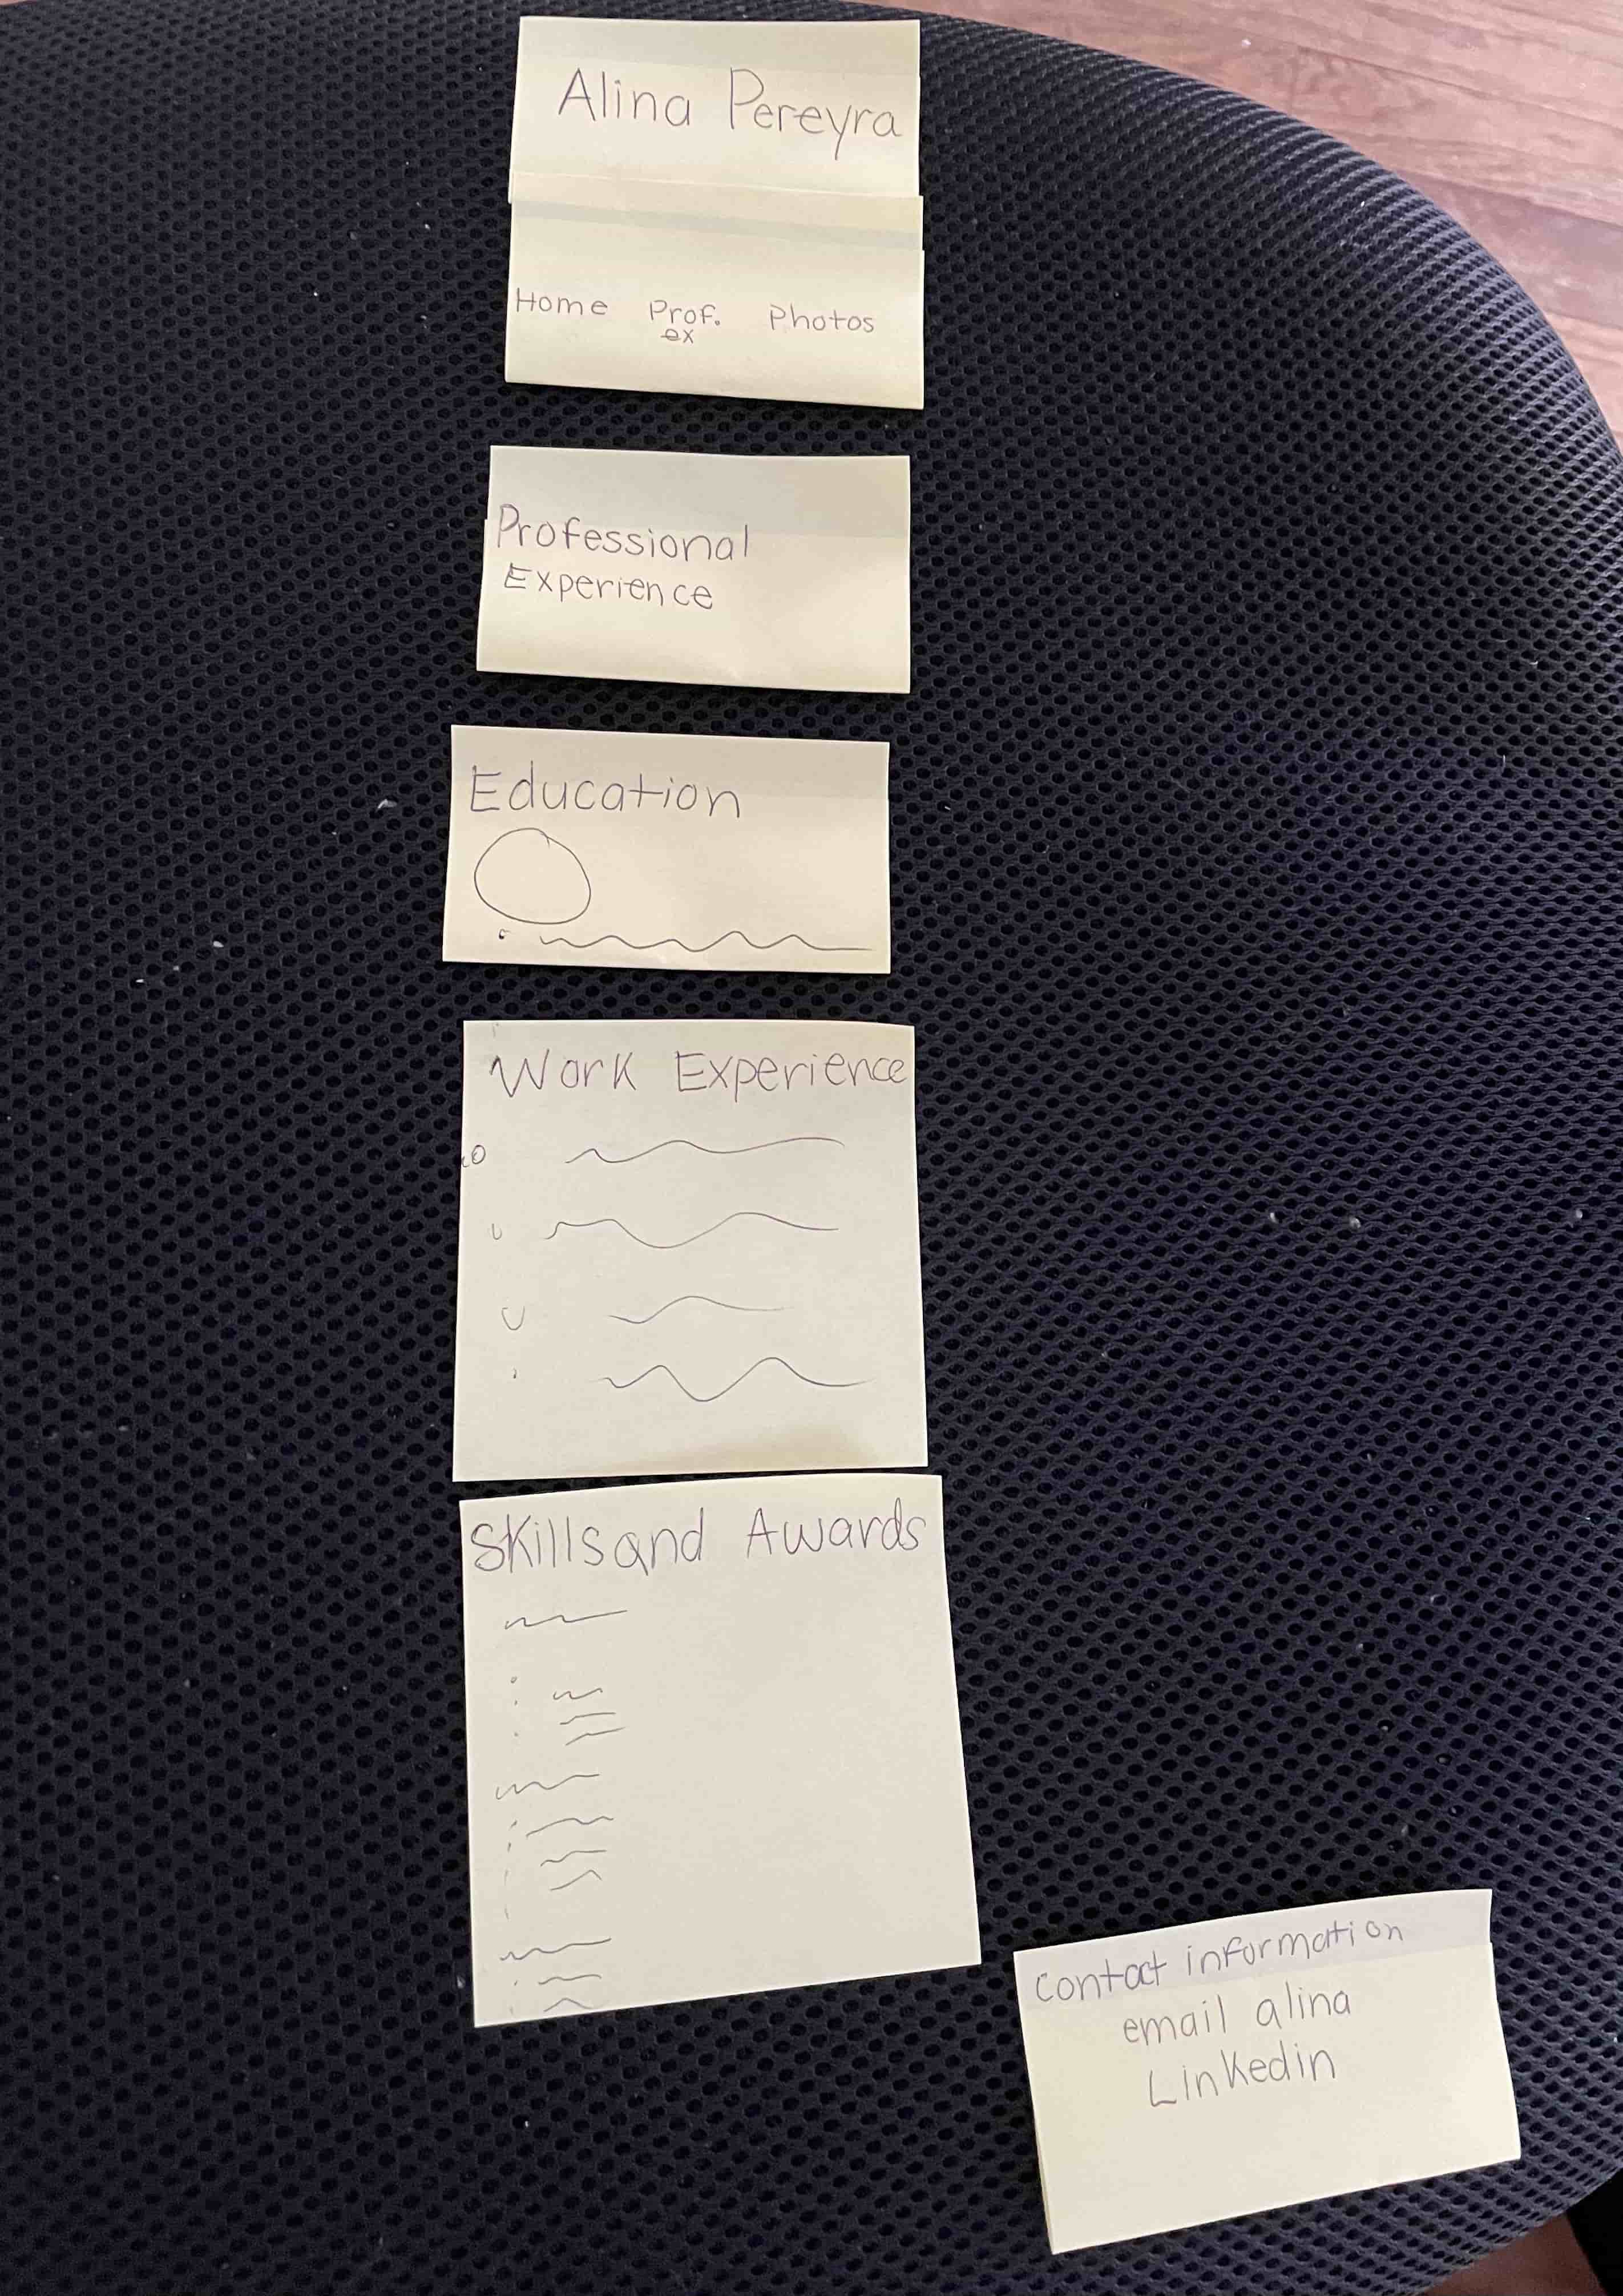 Alina Pereyra
Home Prof. Photos
ex
Professional
Experience
Education
Work Experience
Skills and Awards
contact information
email alina
Linkedin